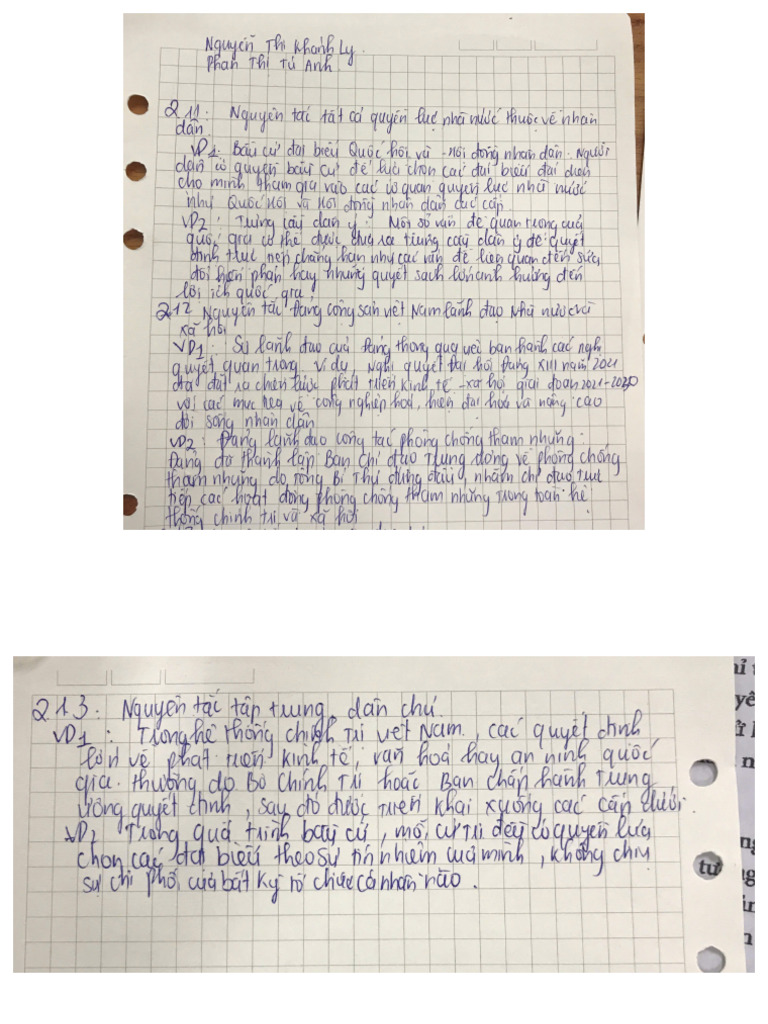 Nguyễn Thị Khánh Ly.
Phan Thị Tú Anh
2.1.1: Nguyên tắc tất cả quyền lực nhà nước thuộc về nhân
dân
VD1: Bầu cử đại biểu Quốc hội và Hội đồng nhân dân: Người
dân có quyền bầu cử để lựa chọn các đại biểu đại diện
cho mình tham gia vào các cơ quan quyền lực nhà nước
như Quốc Hội và Hội đồng nhân dân các cấp
VD2: Trưng cầu dân ý: Một số vấn đề quan trọng của
quốc gia có thể được đưa ra trưng cầu dân ý để quyết
định trực tiếp chẳng hạn như các vấn đề liên quan đến sửa
đổi hiến pháp hay những quyết sách lớn ảnh hưởng đến
lợi ích quốc gia.
2.1.2 Nguyên tắc Đảng cộng sản Việt Nam lãnh đạo Nhà nước và
xã hội
VD1: Sự lãnh đạo của Đảng thông qua việc ban hành các nghị
quyết quan trọng. Ví dụ, Nghị quyết Đại hội Đảng XIII năm 2021
đã đặt ra chiến lược phát triển kinh tế - xã hội giai đoạn 2021-2030
với các mục tiêu về công nghiệp hoá, hiện đại hoá và nâng cao
đời sống nhân dân
VD2: Đảng lãnh đạo công tác phòng chống tham nhũng:
Đảng đã thành lập Ban Chỉ đạo Trung ương về phòng chống
tham nhũng do Tổng Bí Thư đứng đầu, nhằm chỉ đạo trực
tiếp các hoạt động phòng chống tham nhũng trong toàn hệ
thống chính trị và xã hội
2.1.3: Nguyên tắc tập trung dân chủ
VD1: Trong hệ thống chính trị Việt Nam, các quyết định
lớn về phát triển kinh tế, văn hoá hay an ninh quốc
gia thường do Bộ Chính Trị hoặc Ban Chấp hành Trung
ương quyết định, sau đó được triển khai xuống các cấp dưới
VD2 Trong quá trình bầu cử, mỗi cử tri đều có quyền lựa
chọn các đại biểu theo sự tín nhiệm của mình, không chịu
sự chi phối của bất kỳ tổ chức cá nhân nào.
tư